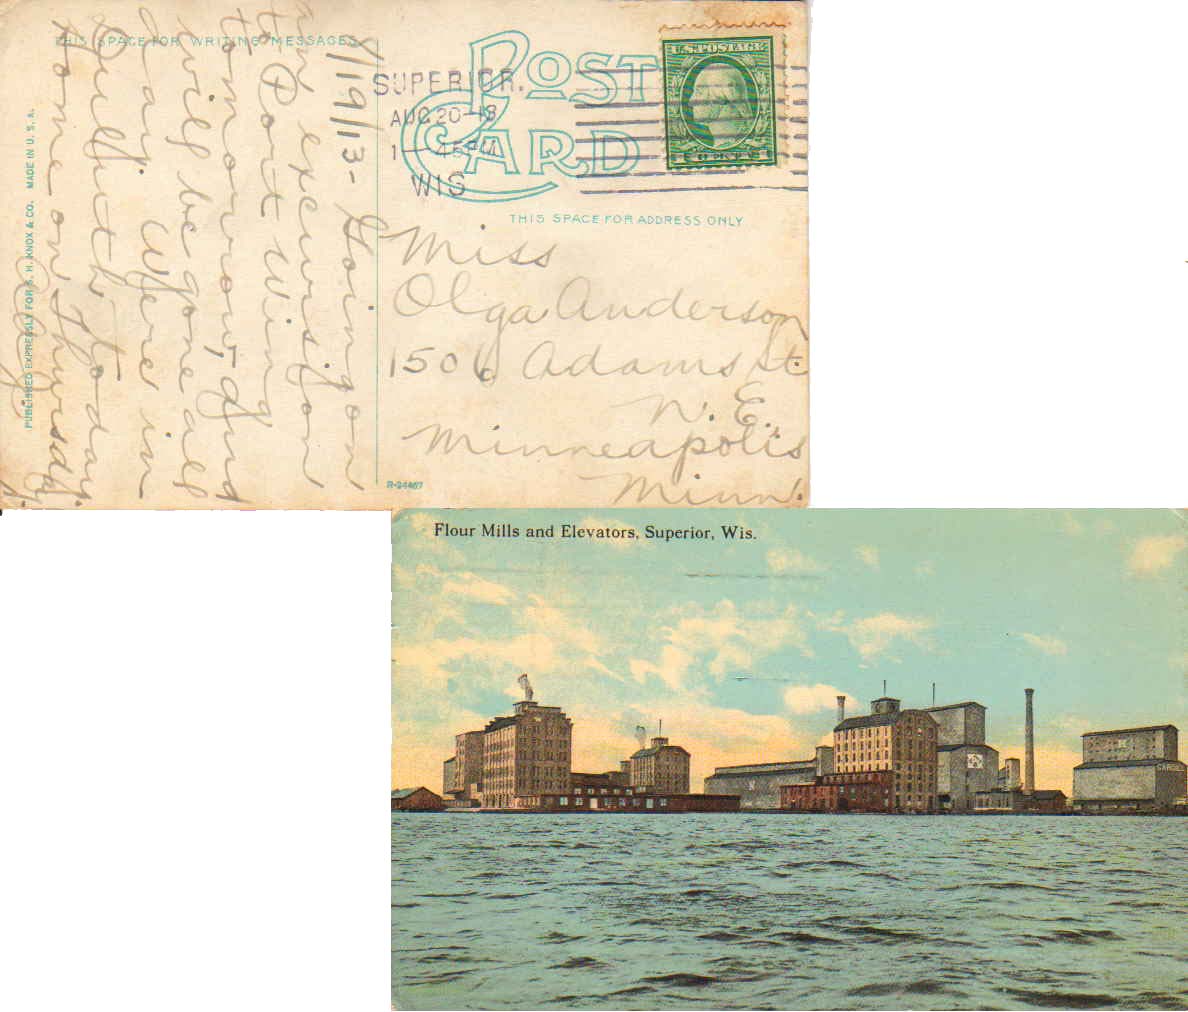 THIS SPACE FOR WRITING MESSAGES
POST
CARD
U.S. POSTAGE
SUPERIOR.
AUG 20-13
1-45PM
WIS
THIS SPACE FOR ADDRESS ONLY
8/19/13- Going on
an excursion
to Port Wing
tomorrow, and
will be gone all
day. Were in
Duluth today.
Home on Thursday.
Miss
Olga Anderson
1506 Adams St.
N.E.
Minneapolis
Minn.
PUBLISHED EXPRESSLY FOR S. H. KNOX & CO. MADE IN U. S. A.
R-24467
Flour Mills and Elevators, Superior, Wis.